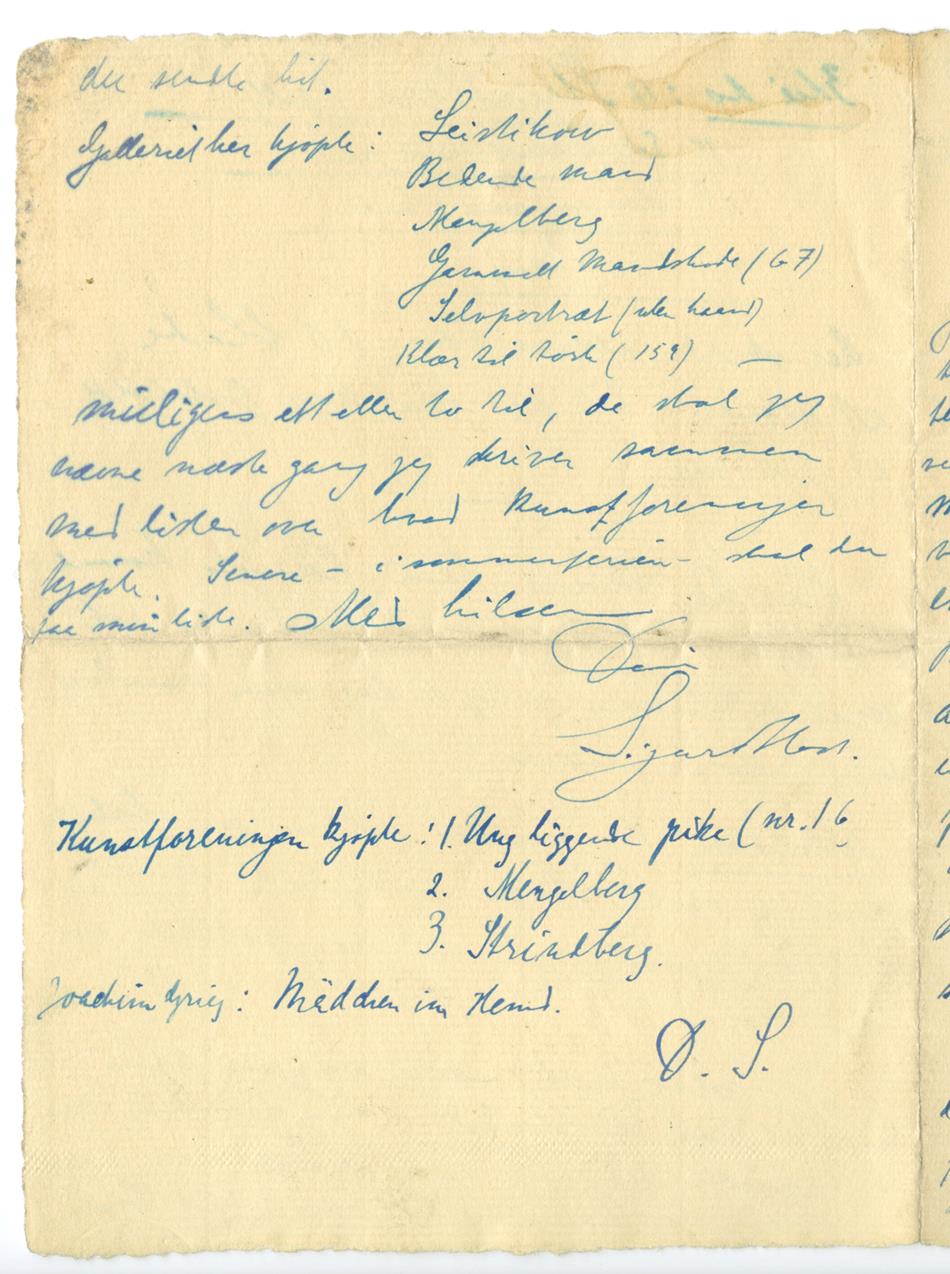 du sendte hit.
Galleriet her kjøpte: Leistikow
Bedende mand
Mengelberg
Gammelt Mandshode (67)
Selvportræt (uten haand)
Klær til tørk (159) —
muligens ett eller to til, de skal jeg
nævne næste gang jeg skriver sammen
med listen over hvad Kunstforeningen
kjøpte. Senere – i sommerferien – skal du
faa min liste. Med hilsen
Din
Sigurd Høst.
Kunstforeningen kjøpte: 1. Ung liggende pike (nr. 16
2. Mengelberg
3. Strindberg.
Joachim Grieg: Mädchen im Hemd.
D. S.